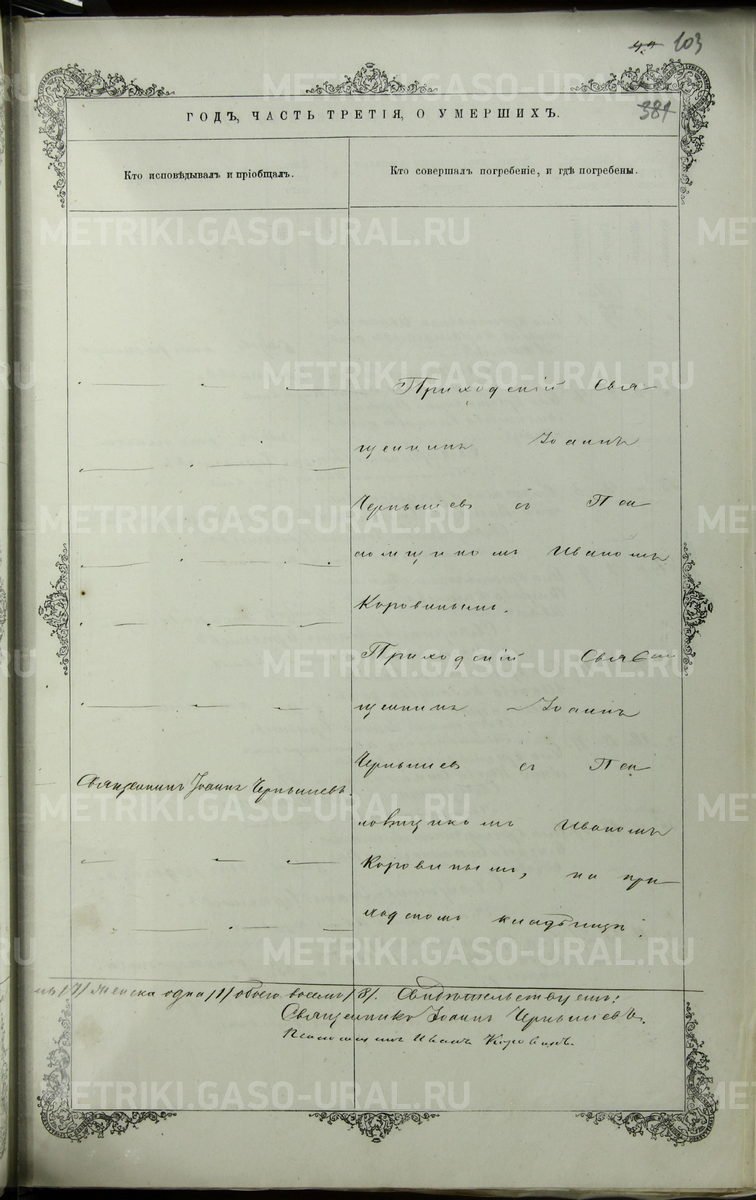 103
381
ГОДЪ, ЧАСТЬ ТРЕТІЯ, О УМЕРШИХЪ.
Кто исповѣдывалъ и пріобщалъ.
Кто совершалъ погребеніе, и гдѣ погребены.
Приходскій Свя-
щенникъ Іоаннъ
Чернышевъ съ Пса
ломщикомъ Иваномъ
Коровинымъ.
Приходскій Свя
щенникъ Іоаннъ
Чернышевъ съ Пса
Священникъ Іоаннъ Чернышевъ.
ломщикомъ Иваномъ
Коровинымъ, на при
ходскомъ кладбищѣ.
женска одна /1/ обоего восемь /8/. Свидѣтельствуемъ:
Священникъ Іоаннъ Чернышевъ.
Псаломщикъ Иванъ Коровинъ.
METRIKI.GASO-URAL.RU